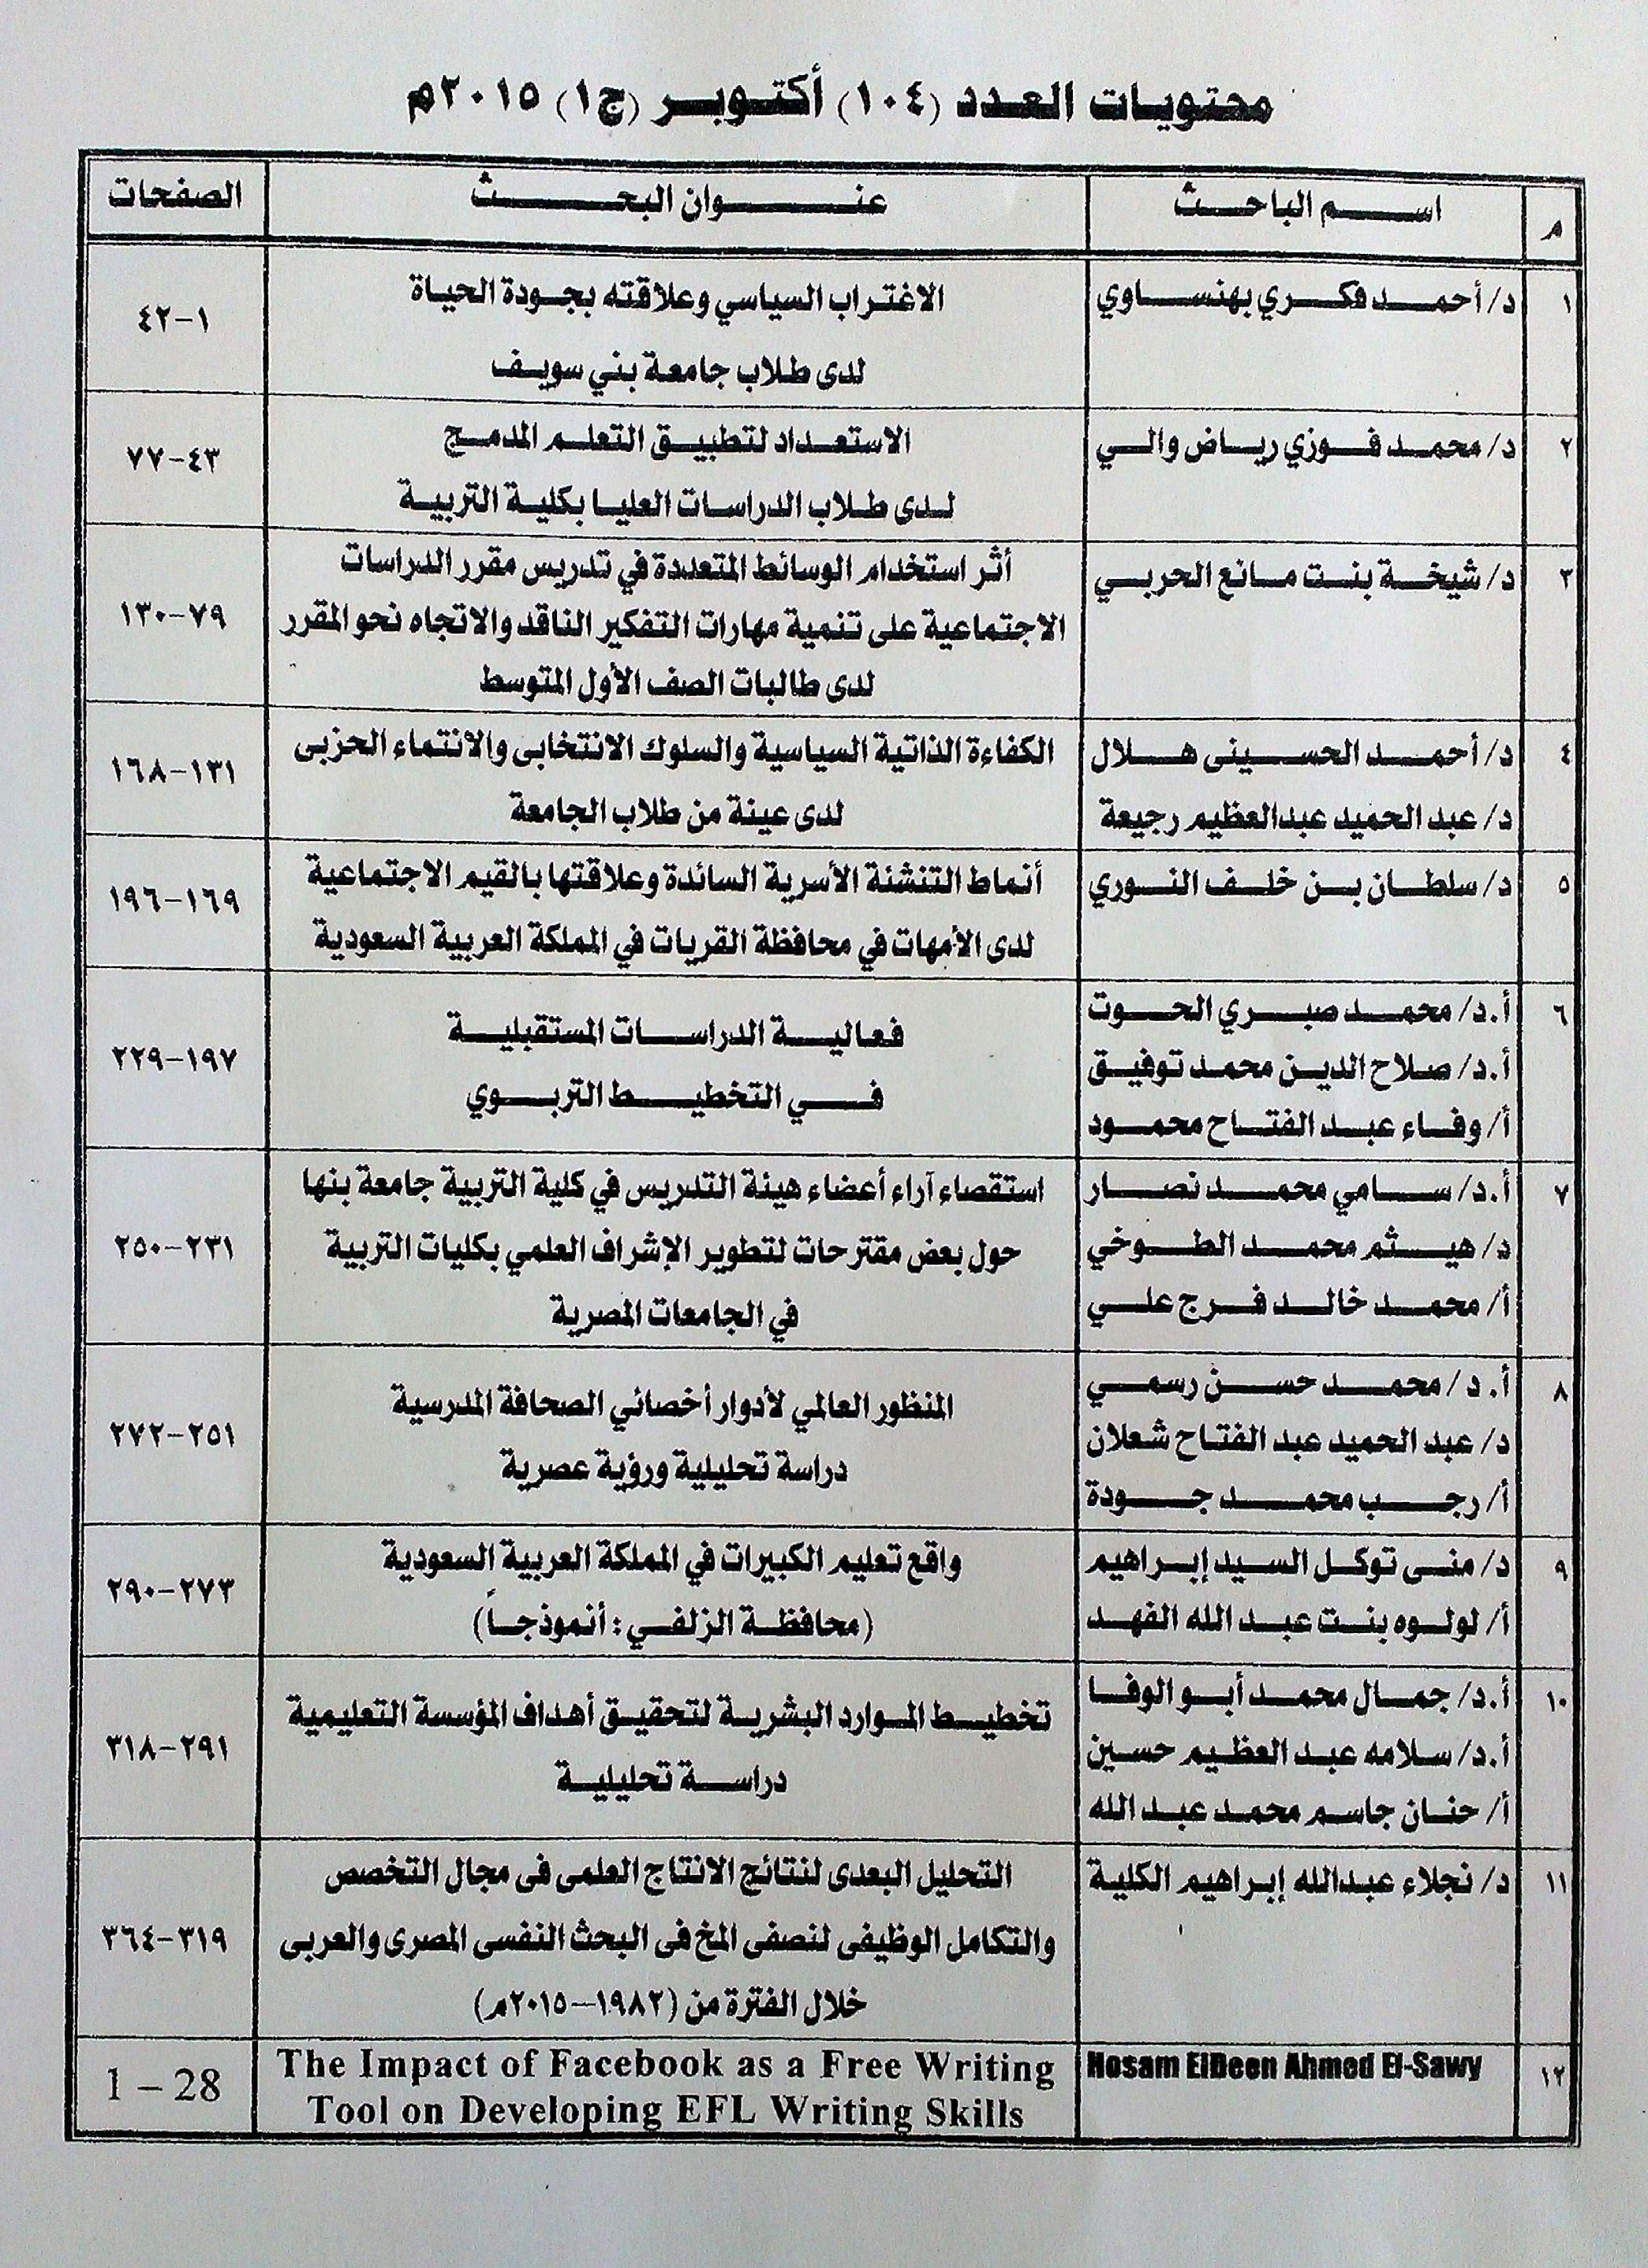 محتويات العدد (١٠٤) أكتوبر (ج١) ٢٠١٥م
م
اسم الباحث
عنوان البحث
الصفحات
١
د/ أحمد فكري بهنساوي
الاغتراب السياسي وعلاقته بجودة الحياة
لدى طلاب جامعة بني سويف
١-٤٢
٢
د/ محمد فوزي رياض والي
الاستعداد لتطبيق التعلم المدمج
لدى طلاب الدراسات العليا بكلية التربية
٤٣-٧٧
٣
د/ شيخة بنت مانع الحربي
أثر استخدام الوسائط المتعددة في تدريس مقرر الدراسات
الاجتماعية على تنمية مهارات التفكير الناقد والاتجاه نحو المقرر
لدى طالبات الصف الأول المتوسط
٧٩-١٣٠
٤
د/ أحمد الحسينى هلال
د/ عبد الحميد عبدالعظيم رجيعة
الكفاءة الذاتية السياسية والسلوك الانتخابى والانتماء الحزبى
لدى عينة من طلاب الجامعة
١٣١-١٦٨
٥
د/ سلطان بن خلف النوري
أنماط التنشئة الأسرية السائدة وعلاقتها بالقيم الاجتماعية
لدى الأمهات في محافظة القريات في المملكة العربية السعودية
١٦٩-١٩٦
٦
أ.د/ محمد صبري الحوت
أ.د/ صلاح الدين محمد توفيق
أ/ وفاء عبد الفتاح محمود
فعالية الدراسات المستقبلية
في التخطيط التربوي
١٩٧-٢٢٩
٧
أ.د/ سامي محمد نصار
د/ هيثم محمد الطوخي
أ/ محمد خالد فرج علي
استقصاء آراء أعضاء هيئة التدريس في كلية التربية جامعة بنها
حول بعض مقترحات لتطوير الإشراف العلمي بكليات التربية
في الجامعات المصرية
٢٣١-٢٥٠
٨
أ.د/ محمد حسن رسمي
د/ عبد الحميد عبد الفتاح شعلان
أ/ رجب محمد جودة
المنظور العالمي لأدوار أخصائي الصحافة المدرسية
دراسة تحليلية ورؤية عصرية
٢٥١-٢٧٢
٩
د/ منى توكل السيد إبراهيم
أ/ لولوه بنت عبد الله الفهد
واقع تعليم الكبيرات في المملكة العربية السعودية
(محافظة الزلفي: أنموذجاً)
٢٧٣-٢٩٠
١٠
أ.د/ جمال محمد أبو الوفا
أ.د/ سلامه عبد العظيم حسين
أ/ حنان جاسم محمد عبد الله
تخطيط الموارد البشرية لتحقيق أهداف المؤسسة التعليمية
دراسة تحليلية
٢٩١-٣١٨
١١
د/ نجلاء عبدالله إبراهيم الكلية
التحليل البعدى لنتائج الانتاج العلمى فى مجال التخصص
والتكامل الوظيفى لنصفى المخ فى البحث النفسى المصرى والعربى
خلال الفترة من (١٩٨٢-٢٠١٥م)
٣١٩-٣٦٤
١٢
Hosam ElDeen Ahmed El-Sawy
The Impact of Facebook as a Free Writing
Tool on Developing EFL Writing Skills
1 – 28